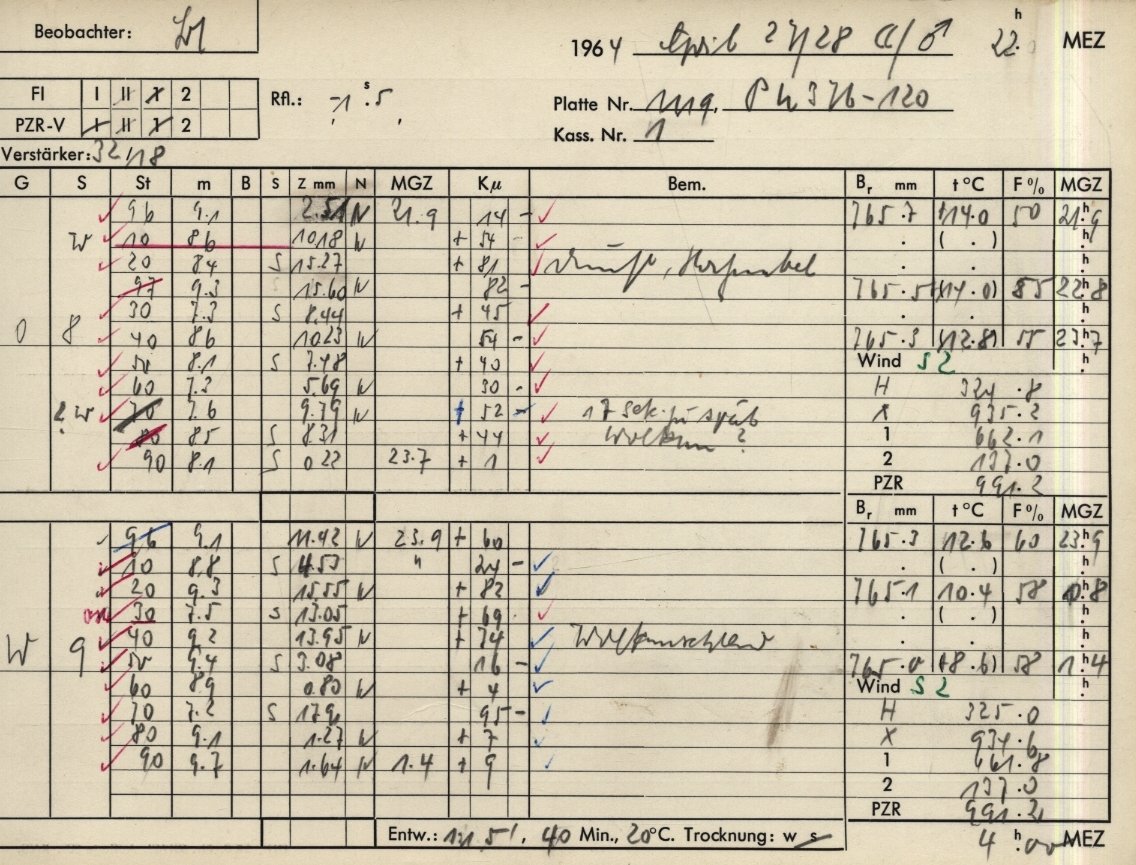 Beobachter:
1964 April 27/28 22. h MEZ
FI I II X 2
Rfl.: -1 s .5
PZR-V I II X 2
Platte Nr. 1119, Ph 376-120
Kass. Nr. 1
Verstärker: 32/18
G S St m B S Z mm N MGZ Kμ Bem. Br mm t °C F % MGZ
96 9.1 2.51 N 21.9 14 - 765.7 +14.0 50 21 h 9
W 10 8.6 10.18 W + 54 - ( . ) h
20 8.4 S 15.27 + 81 .
97 9.3 15.60 W 82 - 765.5 (14.0) 55 22 h 8
30 7.3 S 8.44 + 45
0 8 40 8.6 10.23 W 54 - 765.3 (12.8) 55 23 h 7
50 8.1 S 7.48 + 40 Wind S 2 h
60 7.3 5.69 W 30 - H 324.8
? W 70 7.6 9.79 W + 52 - 17 Sek. zu spät X 935.2
80 8.5 S 8.31 + 44 Wolken ? 1 662.1
90 8.1 S 0.22 23.7 + 1 2 137.0
PZR 991.2
Br mm t °C F % MGZ
96 9.1 11.42 W 23.9 + 60 765.3 12.6 60 23 h 9
10 8.8 S 4.53 " 24 - ( . ) h
20 9.3 15.55 W + 82 765.1 10.4 58 0 h 8
30 7.5 S 13.05 + 69 ( . ) h
W 9 40 9.2 13.95 W + 74 .
50 9.4 S 3.08 16 - 765.0 (+8.6) 58 1 h 4
60 8.9 0.80 W + 4 Wind S 2 h
70 7.2 S 17.9 95 - H 325.0
80 9.1 1.27 W + 7 X 934.6
90 9.7 1.64 W 1.4 + 9 1 661.8
2 137.0
PZR 991.2
Entw.: 40 Min., 20°C. Trocknung: w s 4 h .00 MEZ